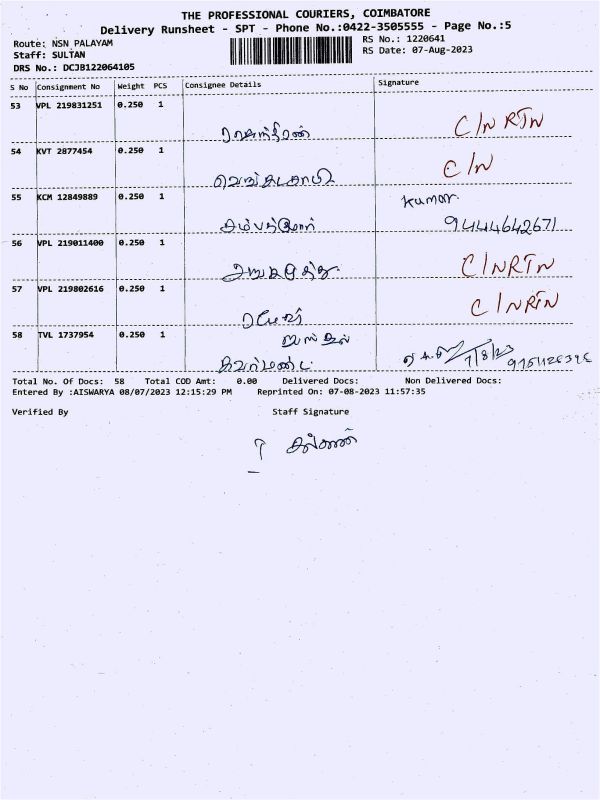 THE PROFESSIONAL COURIERS, COIMBATORE
Delivery Runsheet - SPT - Phone No.:0422-3505555 - Page No.:5
Route: NSN PALAYAM
Staff: SULTAN
DRS No.: DCJB122064105
RS No.: 1220641
RS Date: 07-Aug-2023
S No Consignment No Weight PCS Consignee Details Signature
53 VPL 219831251 0.250 1
C/N RTN
54 KVT 2877454 0.250 1
C/N
55 KCM 12849889 0.250 1
Kumar.
9444642671
56 VPL 219011400 0.250 1
C/NRTN
57 VPL 219802616 1 0.250 1
C/NRTN
58 TVL 1737954 0.250 1
7/8/23
Total No. Of Docs: 58 Total COD Amt: 0.00 Delivered Docs: Non Delivered Docs:
Entered By :AISWARYA 08/07/2023 12:15:29 PM Reprinted On: 07-08-2023 11:57:35
Verified By Staff Signature